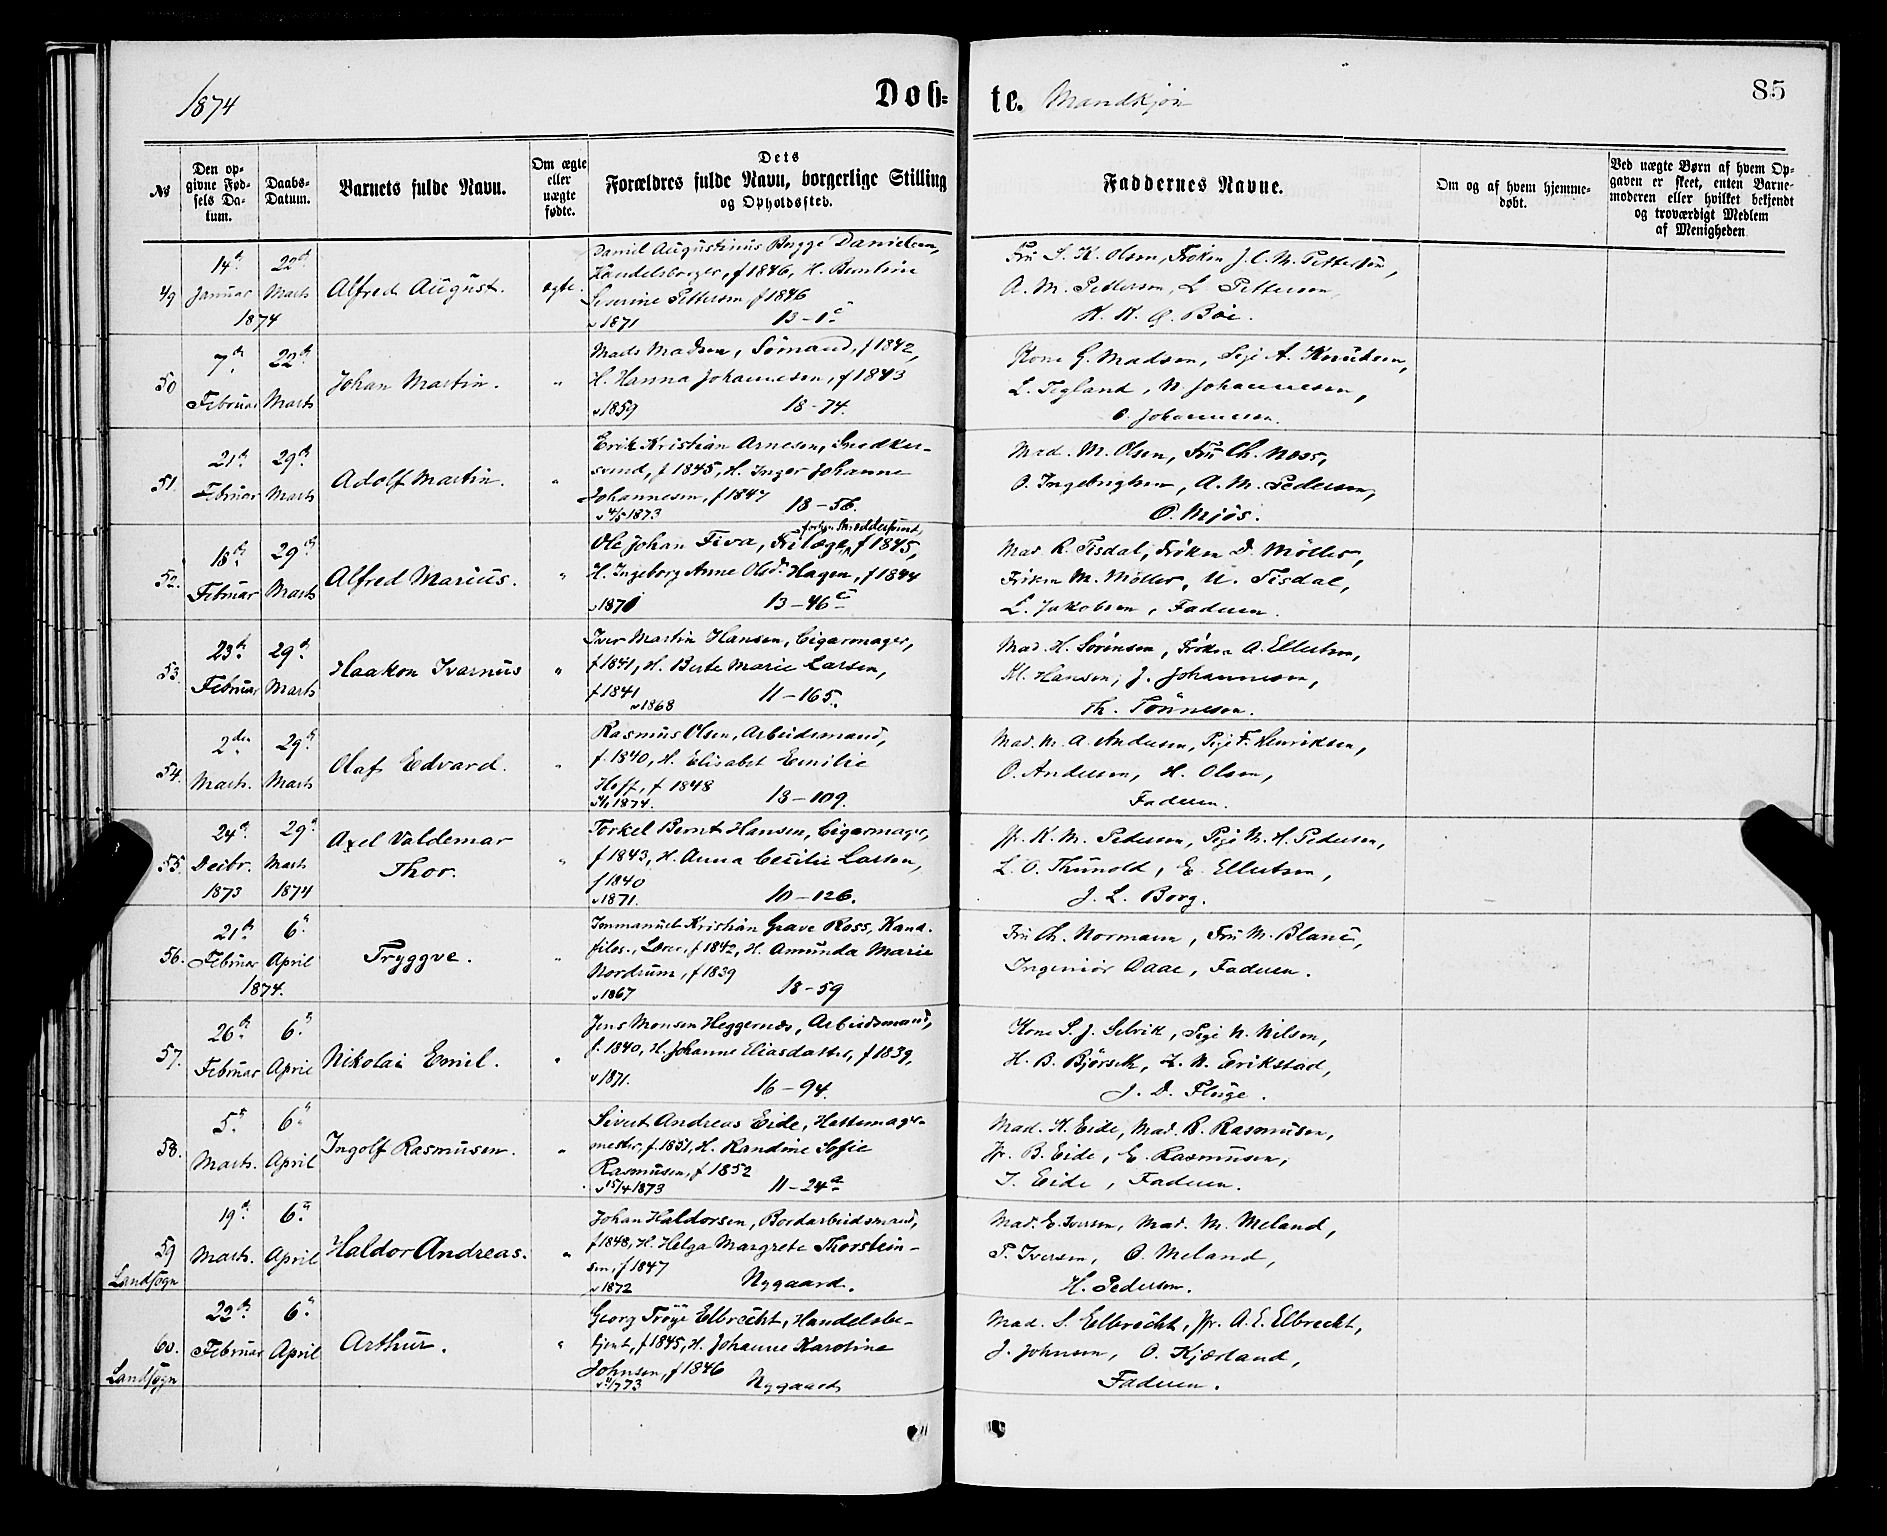 1874
Dob=
te. Mandkjön
85
№
Den op-
givne Fød-
sels Da-
tum.
Daabs-
Datum.
Barnets fulde Navn.
Om ægte
eller
uægte
fødte.
Dets
Forældres fulde Navn, borgerlige Stilling
og Opholdssted.
Faddernes Navne.
Om og af hvem hjemme-
døbt.
Ved uægte Børn af hvem Op-
gaven er skeet, enten Barne-
moderen eller hvilket bekjendt
og troværdigt Medlem
af Menigheden
49
14de Januar 1874
22de Marts
Alfred August.
ægte.
Daniel Augustinus Brygge Danielsen,
Handelsborger, f 1846, H. Bentine
Severine Pettersen f 1846
v 1871 13-1c
Fru S. K. Olsen, Frøken J. C. M. Pettersen,
A. M. Pettersen, L. Pettersen,
K. K. G. Böe.
50
7de Februar
22de Marts
Johan Martin.
"
Mads Madsen, Sömand, f 1842,
H. Hanna Johannesen, f 1843
v 1859 18-74.
Kone G. Madsen, Pige A. Knudsen,
L. Tegland, N. Johannesen,
O. Johannesen.
51.
21de Februar
29de Marts
Adolf Martin.
"
Erik Kristian Arnesen, Snedker-
svend, f 1845, H. Inger Johanne
Johannesen, f 1847
v 4/5 1873 18-56.
Mad. M. Olsen, Fru Ch. Ross,
O. Ingebrigtsen, A. M. Pedersen,
O. Mjös.
52.
18de Februar
29de Marts
Alfred Marius.
"
forhen Skräddersvend,
Ole Johan Fiva, f 1845,
H. Ingeborg Anne Olsdr. Hagen, f 1844
v 1871 13-46c
Mad. R. Tisdal, Frøken D. Möller,
Frøken M. Möller, U. Tisdal,
L. Jakobsen, Faderen.
53.
23de Februar
29de Marts
Haakon Ivarnus
"
Iver Martin Hansen, Cigarmager,
f 1841, H. Berte Marie Larsen,
f 1841
v 1868 11-165.
Mad. H. Sörensen, Frøken A. Ellertsen,
M. Hansen, J. Johannesen,
Th. Tönnesen.
54.
2den Marts.
29de Marts
Olaf Edvard.
"
Rasmus Olsen, Arbeidsmand,
f. 1840, H. Elisabet Emilie
Hoff, f 1848
1874. 13-109.
Mad. N. A. Andersen, Pige F. Henriksen,
O. Andersen, H. Olsen,
Faderen.
55.
24de Decbr. 1873
29de Marts 1874
Axel Valdemar
Thor.
"
Torkel Bernt Hansen, Cigarmager,
f 1843, H. Anna Cecilie Larsen,
f 1840
v 1871. 10-126.
Jfr. K. M. Pedersen, Pige M. H. Pedersen,
L. O. Thunold, E. Ellertsen,
J. L. Borg.
56.
21de Februar 1874.
6te April
Tryggve.
"
Immanuel Kristian Grave Ross, Kand.
filos., Lærer, f 1842, H. Amunda Marie
Nordrum, f 1839
v 1867 18-59
Fru Ch. Normann, Fru M. Blanc,
Ingeniör Daae, Faderen.
57.
26de Februar
6te April
Nikolai Emil.
"
Jens Monsen Heggernæs, Arbeidsmand,
f. 1840, H. Johanne Eliasdatter, f 1839,
v 1871. 16-94.
Kone S. J. Selvik, Pige N. Nilsen,
H. B. Björseth, L. N. Erikstad,
J. D. Fluge.
58.
5te Marts.
6te April
Ingolf Rasmusen.
"
Sivert Andreas Eide, Hattemager-
mester, f. 1851, H. Randine Sofie
Rasmusen, f 1852
v 15/4 1873 11-24a
Mad. K. Eide, Mad. B. Rasmusen,
Jfr. B. Eide, E. Rasmusen,
I. Eide, Faderen.
59
Landsogn
19de Marts.
6te April
Haldor Andreas.
"
Johan Haldorsen, Bordarbeidsmand,
f 1848, H. Helga Margrete Thorstein-
sen, f 1847
v 1872 Nygaard.
Mad. E. Iversen, Mad. M. Meland,
P. Iversen, O. Meland,
H. Pedersen.
60.
Landsogn
22de Februar
6te April
Arthur.
"
Georg Tröye Elbrecht, Handelsbe-
tjent, f 1845, H. Johanne Karoline
Johnsen, f 1846
73 Nygaard
Mad. S. Elbrecht, Jfr. A. E. Elbrecht,
J. Johnsen, O. Kjærland,
Faderen.